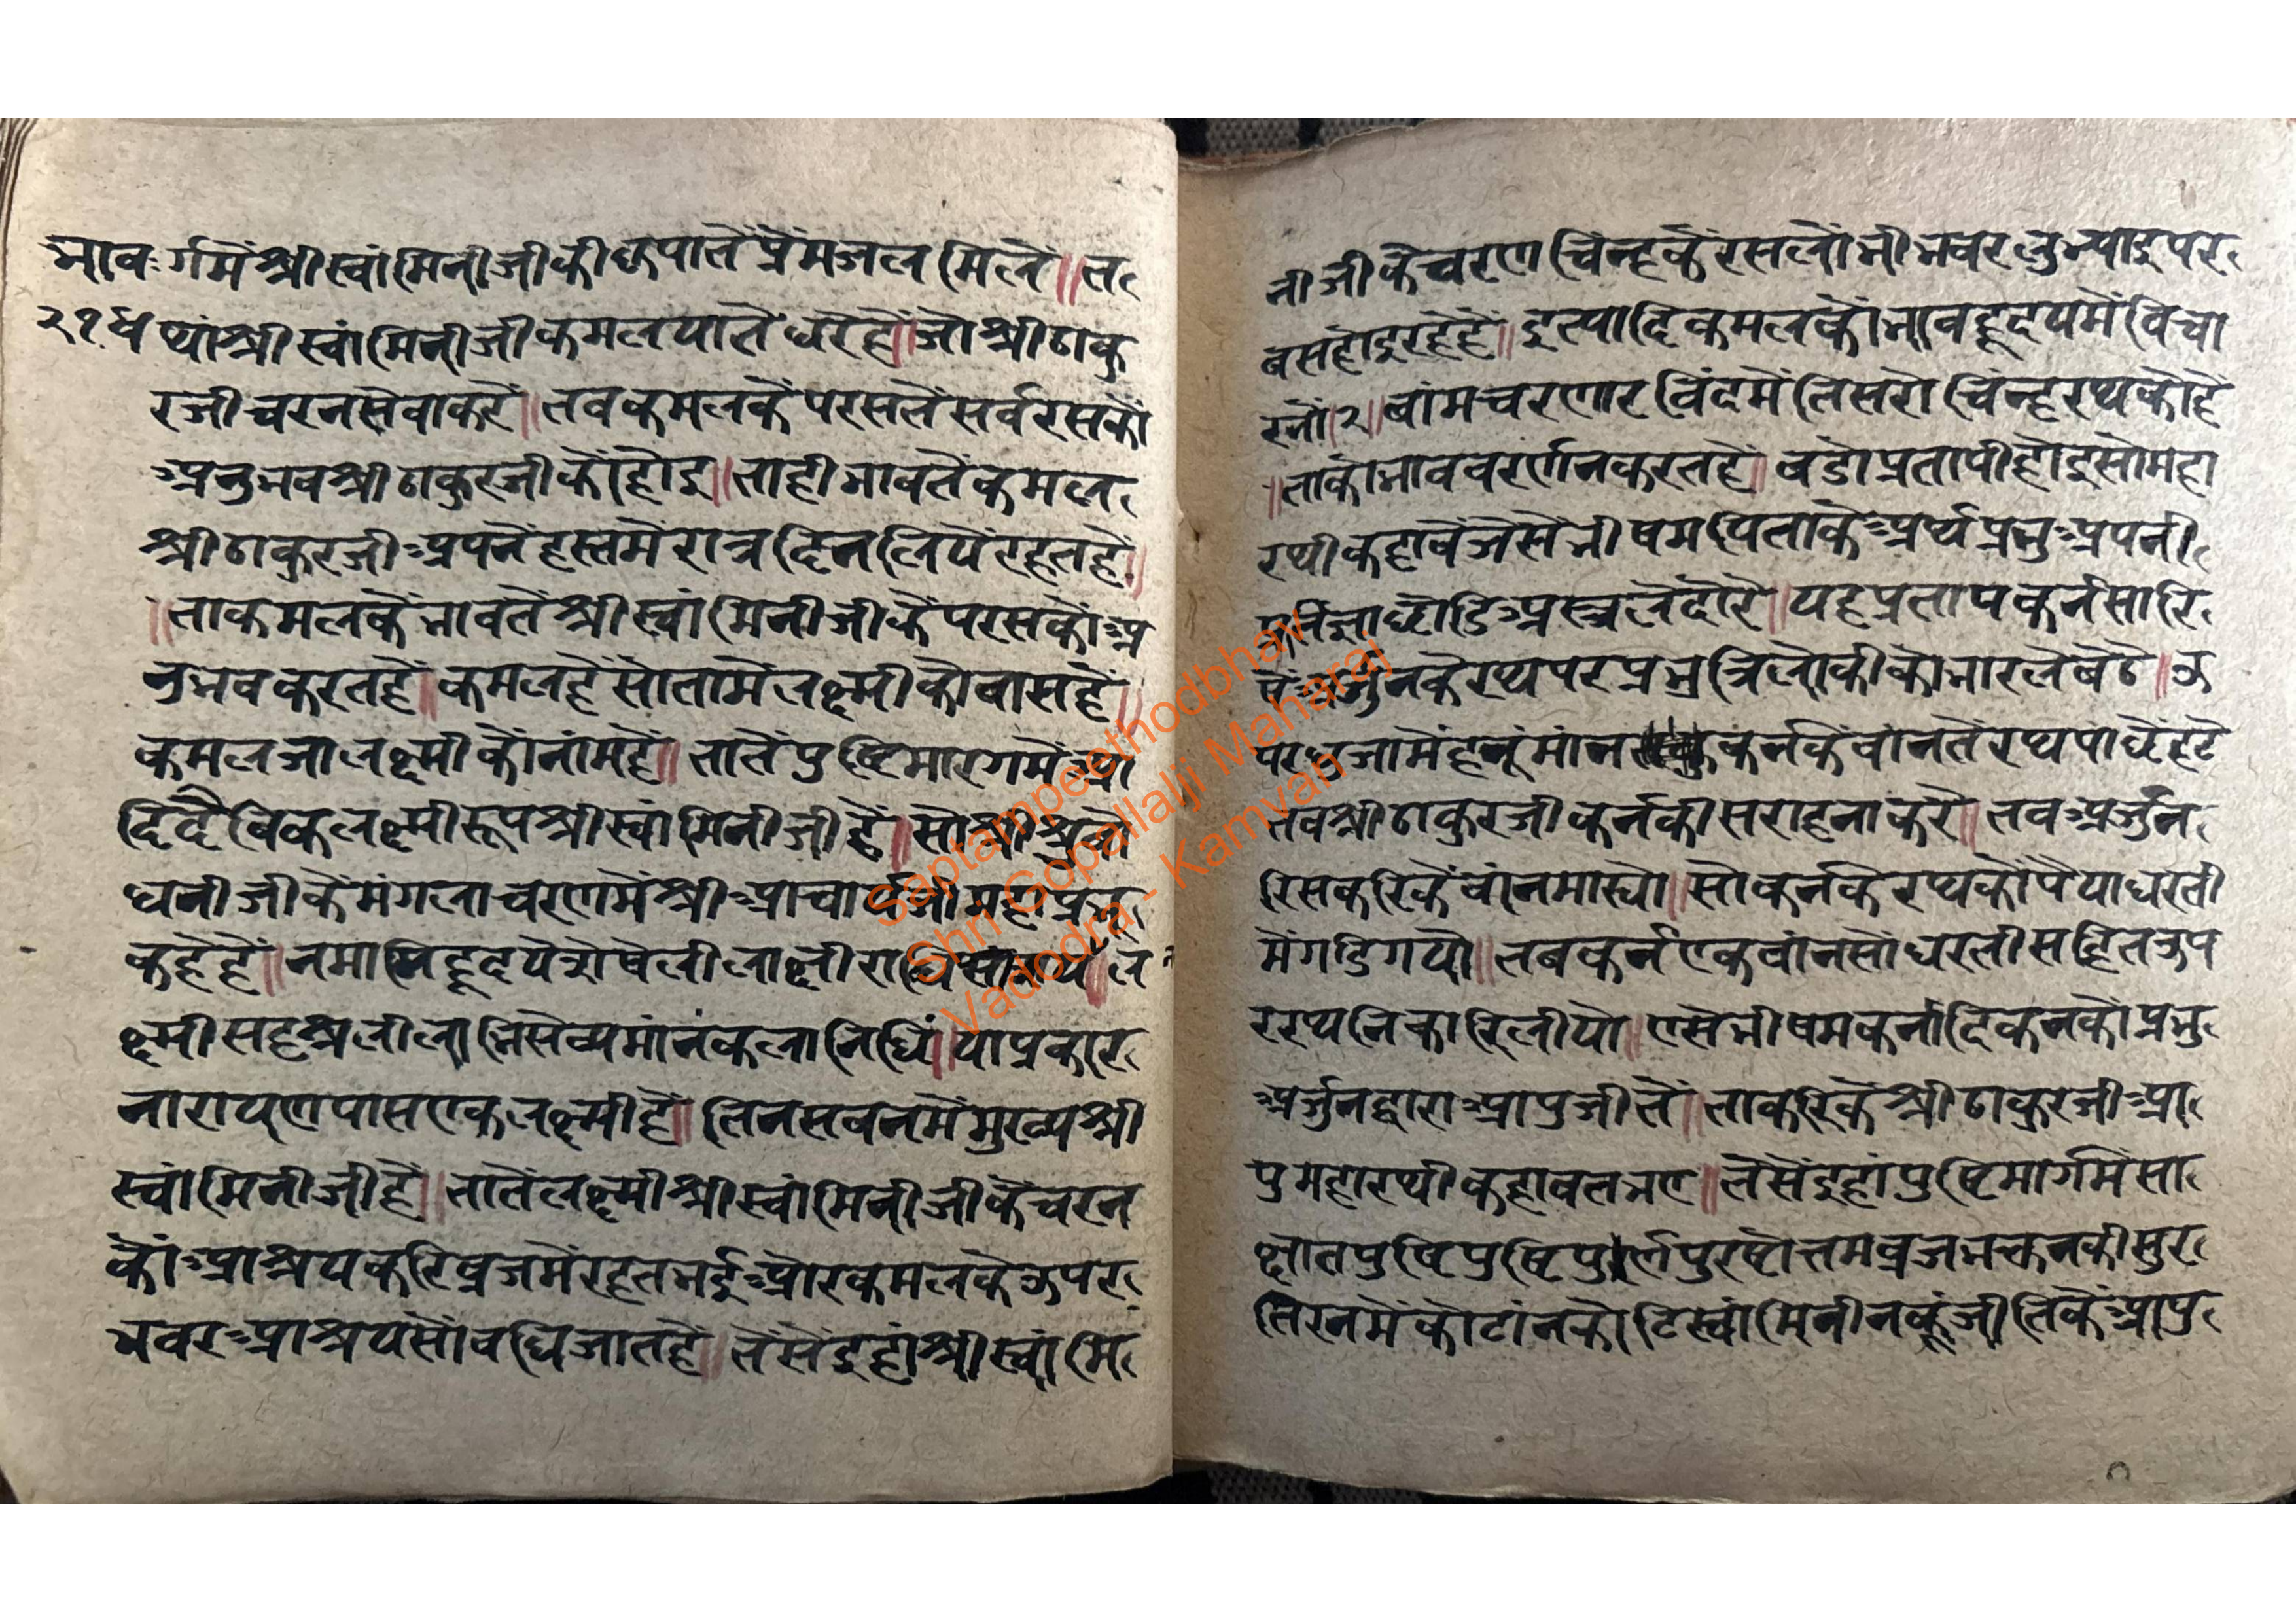 भाव र्गमें श्री स्वांमिनीजी की कृपातें प्रेंम जल मिलें॥ त
२१ ध प्यां श्री स्वांमिनीजी कमल यातें धरेहें॥ जो श्री ठाकु
रजी चरनसेवा करें॥ तव कमल कें परसतें सर्व रसकों
अनुभव श्री ठाकुरजी कों होइ॥ ताही भावतें कमल
श्री ठाकुरजी अपनें हस्तमें रात्र दिन लियें रहतहें॥
॥ ता कमलकें भावतें श्री स्वांमिनीजी कें परसकों अ
नुभव करतहें॥ कमलहें सो तामें लक्ष्मी को वासहें॥
कमलजा लक्ष्मी कों नांमहें॥ तातें पुष्टिमारगमें आ
दिदैविक लक्ष्मीरूप श्री स्वांमिनीजी हें॥ सो श्री शुवो
धनीजी कें मंगलाचरणमें श्री आचार्यजी महाप्रभु
कहेहें॥ नमामि हृदये शेषे लीलाक्ष्षी राधि सायं॥ ल
क्ष्मी सहश्र लीला भिसेव्यमांनं कलानिधिं॥ या प्रकार
नारायण पास एक लक्ष्मी हें॥ तिन सवनमें मुख्य श्री
स्वांमिनीजी हें॥ तातें लक्ष्मी श्री स्वांमिनीजी कें चरन
कों आश्रय करि व्रजमें रहत भई ओर कमल कें ऊपर
भवर आश्रय सों वधि जातहें॥ तेंसेंइहां श्री स्वांमि
नीजी कें चरण चिंन्ह कें रस लोंभी भवर लुभ्याइ पर
बस होइ रहेहें॥ इत्यादि कमल कों भाव हृदयमें विचा
रनों॥२॥ बांम चरणारविंदमें तिसरो चिंन्ह रथ को हें
॥ ताकों भाव वरर्णन करतहें॥ बडो प्रतापी होइ सो महा
रथी कहावें जेसें भीषम पिताकें अर्थ प्रभु अपनी
प्रतिज्ञा छोडि अस्त्र लें दोरे॥ यह प्रताप कर्न सारि
षें अर्जुन कें रथ पर प्रभु त्रिलोकी को भार लें बेठे॥ ऊ
पर धुजामें हनूंमांन कर्न कें बांनतें रथ पाछें हटे
तव श्री ठाकुरजी कर्न की सराहना करें॥ तव अर्जुन
रिस करिकें बांन मास्यो॥ सो कर्न कें रथ कों पैया धरती
में गडि गयो॥ तब कर्न एक बांनसों धरती सहित ऊप
र रथ निकारि लीयो॥ एसें भीषम कर्नादिकनकों प्रभु
अर्जुन द्वारा आपु जीतें॥ ताकरिकें श्री ठाकुरजी आ
पु महारथी कहावत भए॥ तेंसेंइहां पुष्टिमार्गमें सा
क्षात पुष्टि पुष्टि पुर्ण पुरषोत्तम व्रजभक्तनकी सुर
तिरनमें कोटांन कोटि स्वांमिनीनकूं जीतिकें आपु